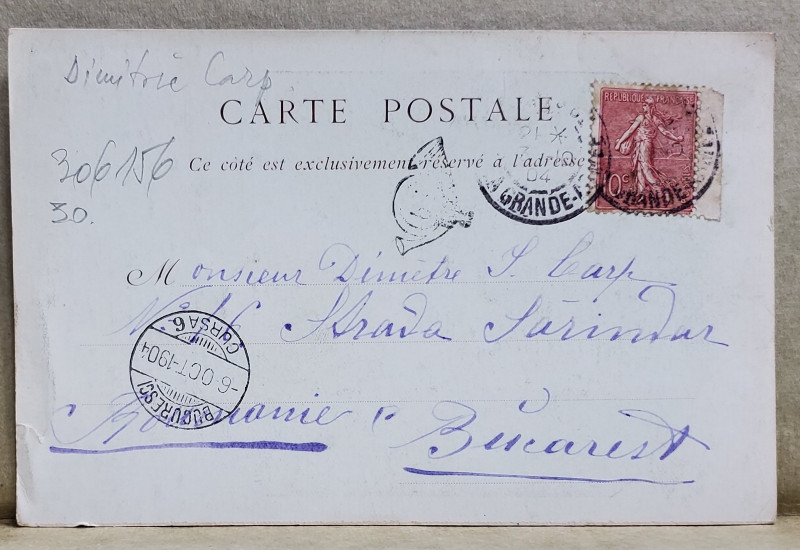 Dimitrie Carp
CARTE POSTALE
Ce côté est exclusivement réservé à l'adresse
306156
30.
REPUBLIQUE FRANÇAISE
10c
04
GRANDE
GRANDE
Monsieur Dimitre S. Carp
No 16 Strada Sărindar
Roumanie
Bucarest
CURSA 6
-6 OCT-1904
BUCURESCI